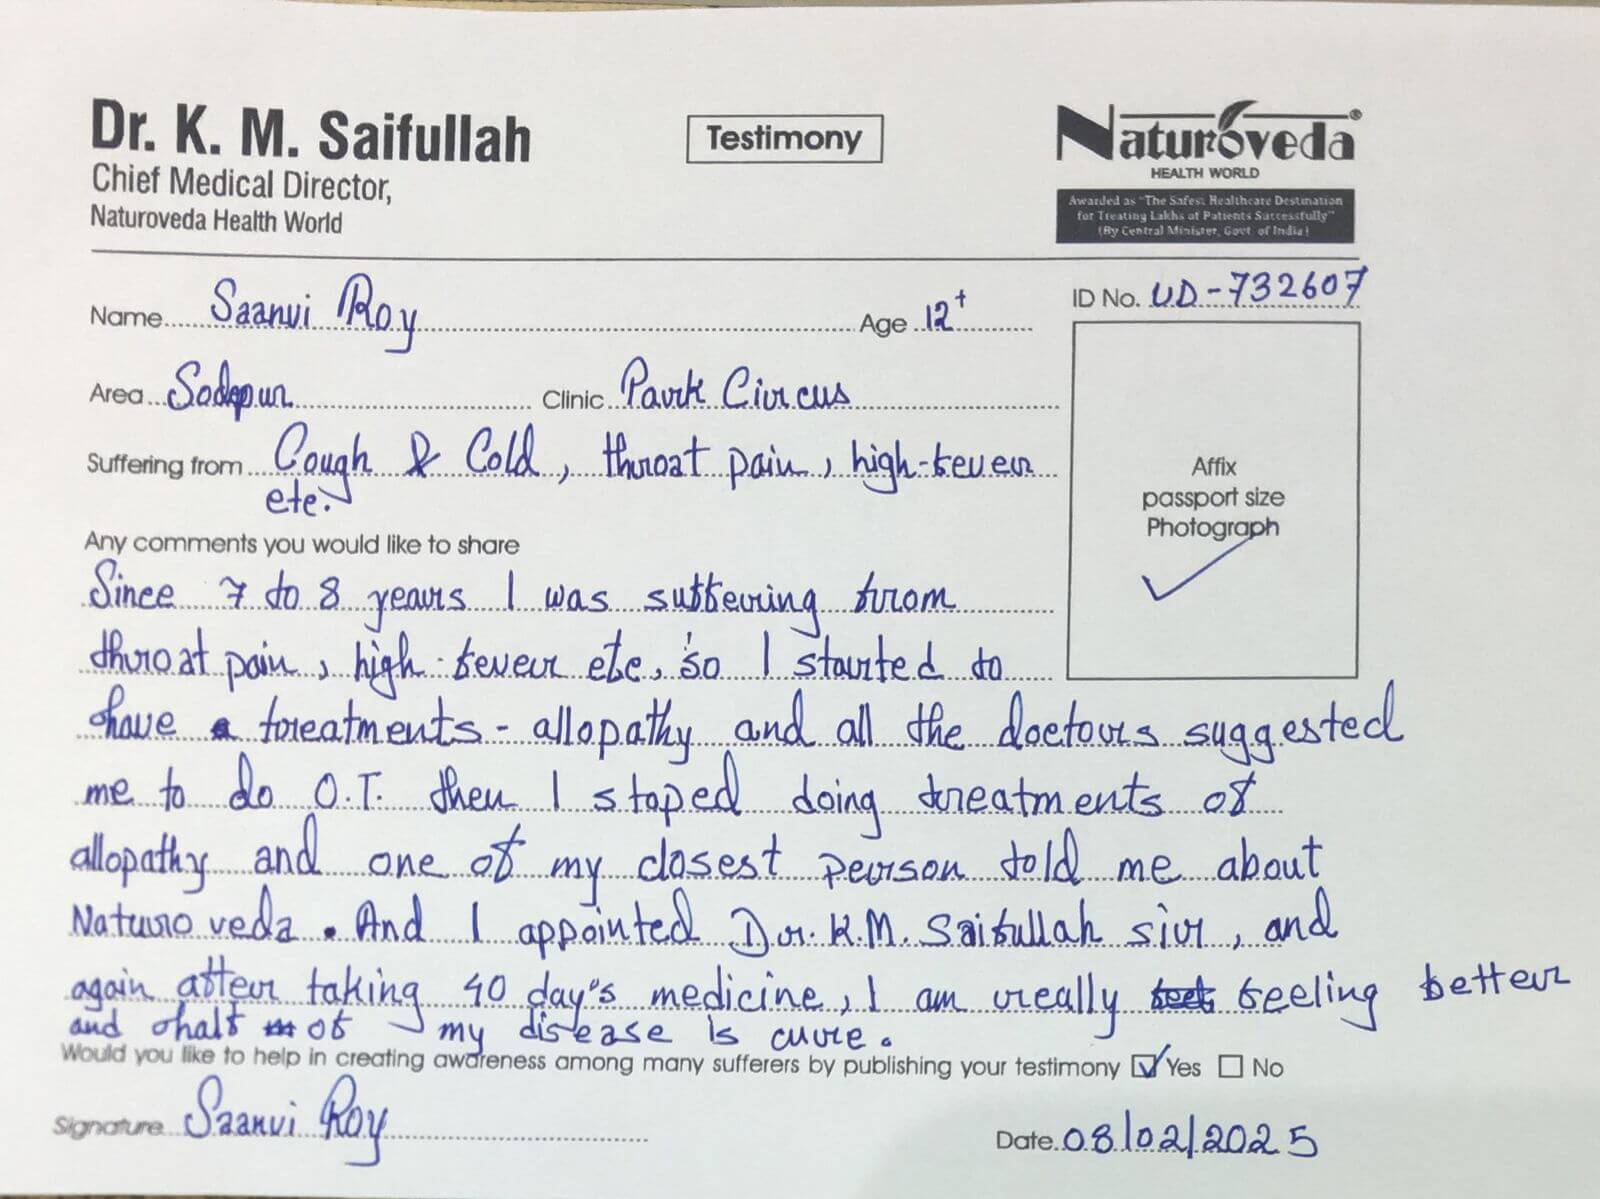 Dr. K. M. Saifullah
Chief Medical Director,
Naturoveda Health World
Testimony
Naturoveda®
HEALTH WORLD
Awarded as "The Safest Healthcare Destination
for Treating Lakhs of Patients Successfully"
(By Central Minister, Govt. of India)
Name Saanvi Roy Age 12+
ID No. UD-732607
Area Sodepur Clinic Park Circus
Suffering from Cough & Cold, throat pain, high-fever
etc.
Affix
passport size
Photograph
Any comments you would like to share
Since 7 to 8 years I was suffering from
throat pain, high-fever etc, so I started to
have treatments - allopathy and all the doctors suggested
me to do O.T. then I stoped doing treatments of
allopathy and one of my closest person told me about
Naturoveda. And I appointed Dr. K.M. Saifullah sir, and
again after taking 40 day's medicine, I am really feeling better
and half of my disease is cure.
Would you like to help in creating awareness among many sufferers by publishing your testimony Yes No
Signature Saanvi Roy
Date 08/02/2025